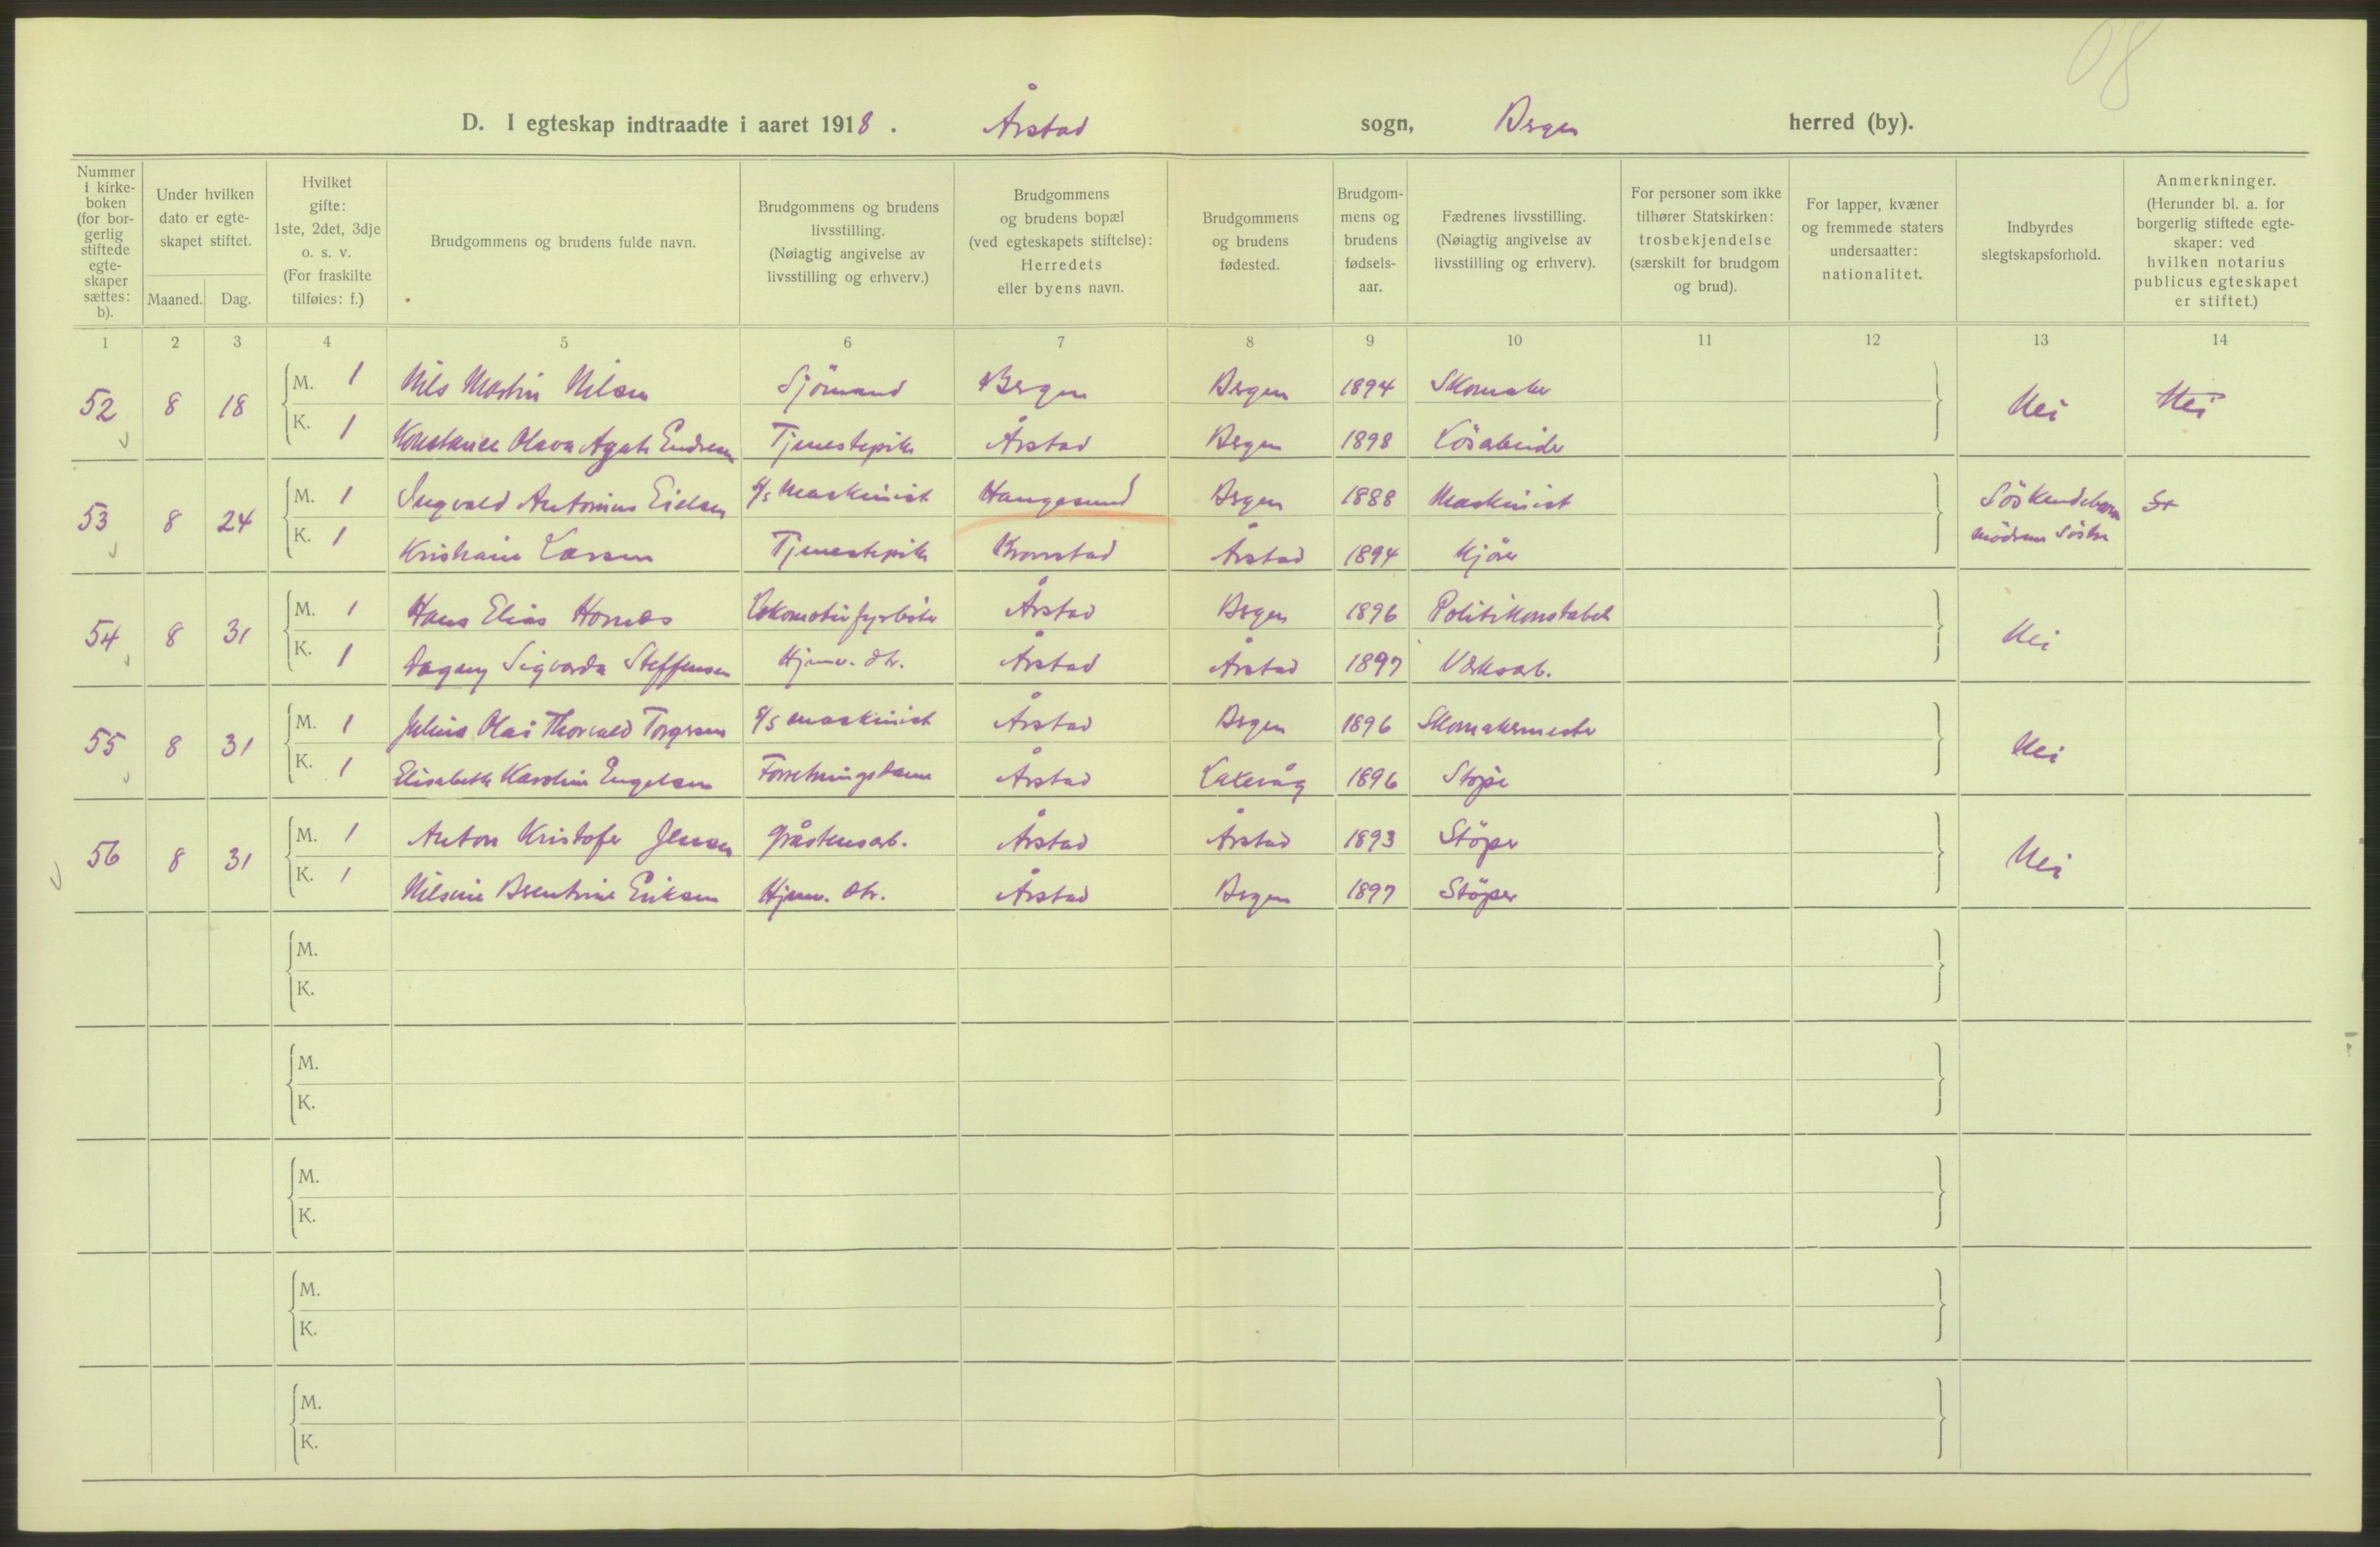 08
D. I egteskap indtraadte i aaret 1918. Årstad sogn, Bergen herred (by).
Nummer i kirke-boken (for bor-gerlig stiftede egte-skaper sættes: b).
Under hvilken dato er egte-skapet stiftet.
Maaned. Dag.
Hvilket gifte: 1ste, 2det, 3dje o. s. v. (For fraskilte tilføies: f.)
Brudgommens og brudens fulde navn.
Brudgommens og brudens livsstilling. (Nøiagtig angivelse av livsstilling og erhverv.)
Brudgommens og brudens bopæl (ved egteskapets stiftelse): Herredets eller byens navn.
Brudgommens og brudens fødested.
Brudgom-mens og brudens fødsels-aar.
Fædrenes livsstilling. (Nøiagtig angivelse av livsstilling og erhverv).
For personer som ikke tilhører Statskirken: trosbekjendelse (særskilt for brudgom og brud).
For lapper, kvæner og fremmede staters undersaatter: nationalitet.
Indbyrdes slegtskapsforhold.
Anmerkninger. (Herunder bl. a. for borgerlig stiftede egte-skaper: ved hvilken notarius publicus egteskapet er stiftet.)
1 2 3 4 5 6 7 8 9 10 11 12 13 14
52 8 18 M. 1 Nils Martin Nilsen Sjömand Bergen Bergen 1894 Skomaker Nei Nei
K. 1 Konstance Olava Agate Endresen Tjenestepike Årstad Bergen 1898 Lösarbeider
53 8 24 M. 1 Ingvald Antonius Eielsen S/s maskinist Haugesund Bergen 1888 Maskinist Söskendebarn St
K. 1 Kristiane Larsen Tjenestepike Kronstad Årstad 1894 Kjörer mödrene Söstre
54 8 31 M. 1 Hans Elias Hornes Lokomotivfyrböter Årstad Bergen 1896 Politikonstabel Nei
K. 1 Dagny Sigvarda Steffensen Hjemv. dtr. Årstad Årstad 1897 Verksarb.
55 8 31 M. 1 Julius Olai Thorvald Torgersen S/s maskinist Årstad Bergen 1896 Skomakermester Nei
K. 1 Elisabeth Karoline Engelsen Forretningsdame Årstad Laksevåg 1896 Stöper
56 8 31 M. 1 Anton Kristofer Jensen Gråstensarb. Årstad Årstad 1893 Stöper Nei
K. 1 Nilsine Berentine Eriksen Hjemv. dtr. Årstad Bergen 1897 Stöper
M.
K.
M.
K.
M.
K.
M.
K.
M.
K.